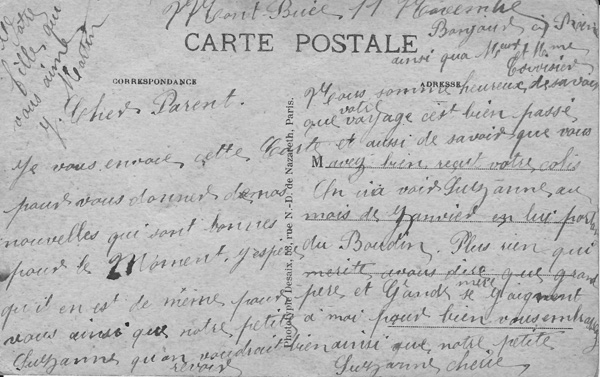 Mont Bucé 11 Novembre
CARTE POSTALE
CORRESPONDANCE
Cher Parent.
Je vous envoie cette Carte
pour vous donner de nos
nouvelles qui sont bonnes
pour le Moment. J'espère
qu'il en est de même pour
vous ainsi que notre petite
Suzanne qu'on voudrait bien
revoir
Photolypie Desaix, 58, rue N.-D. de Nazareth, Paris.
Bonjour a
ainsi qua Mme
ADRESSE
Nous somme heureux de savoir
que votre voyage c'est bien passé
et aussi de savoir que vous
M avez bien reçut votre colis
On ira voir Suzanne au
mois de Janvier en lui portant
du Boudin. Plus rien qui
merite a vous dire que grand
père et Grand mère se joignent
a moi pour bien vous embrasser
ainsi que notre petite
Suzanne cherie
votre
fille qui
vous aime